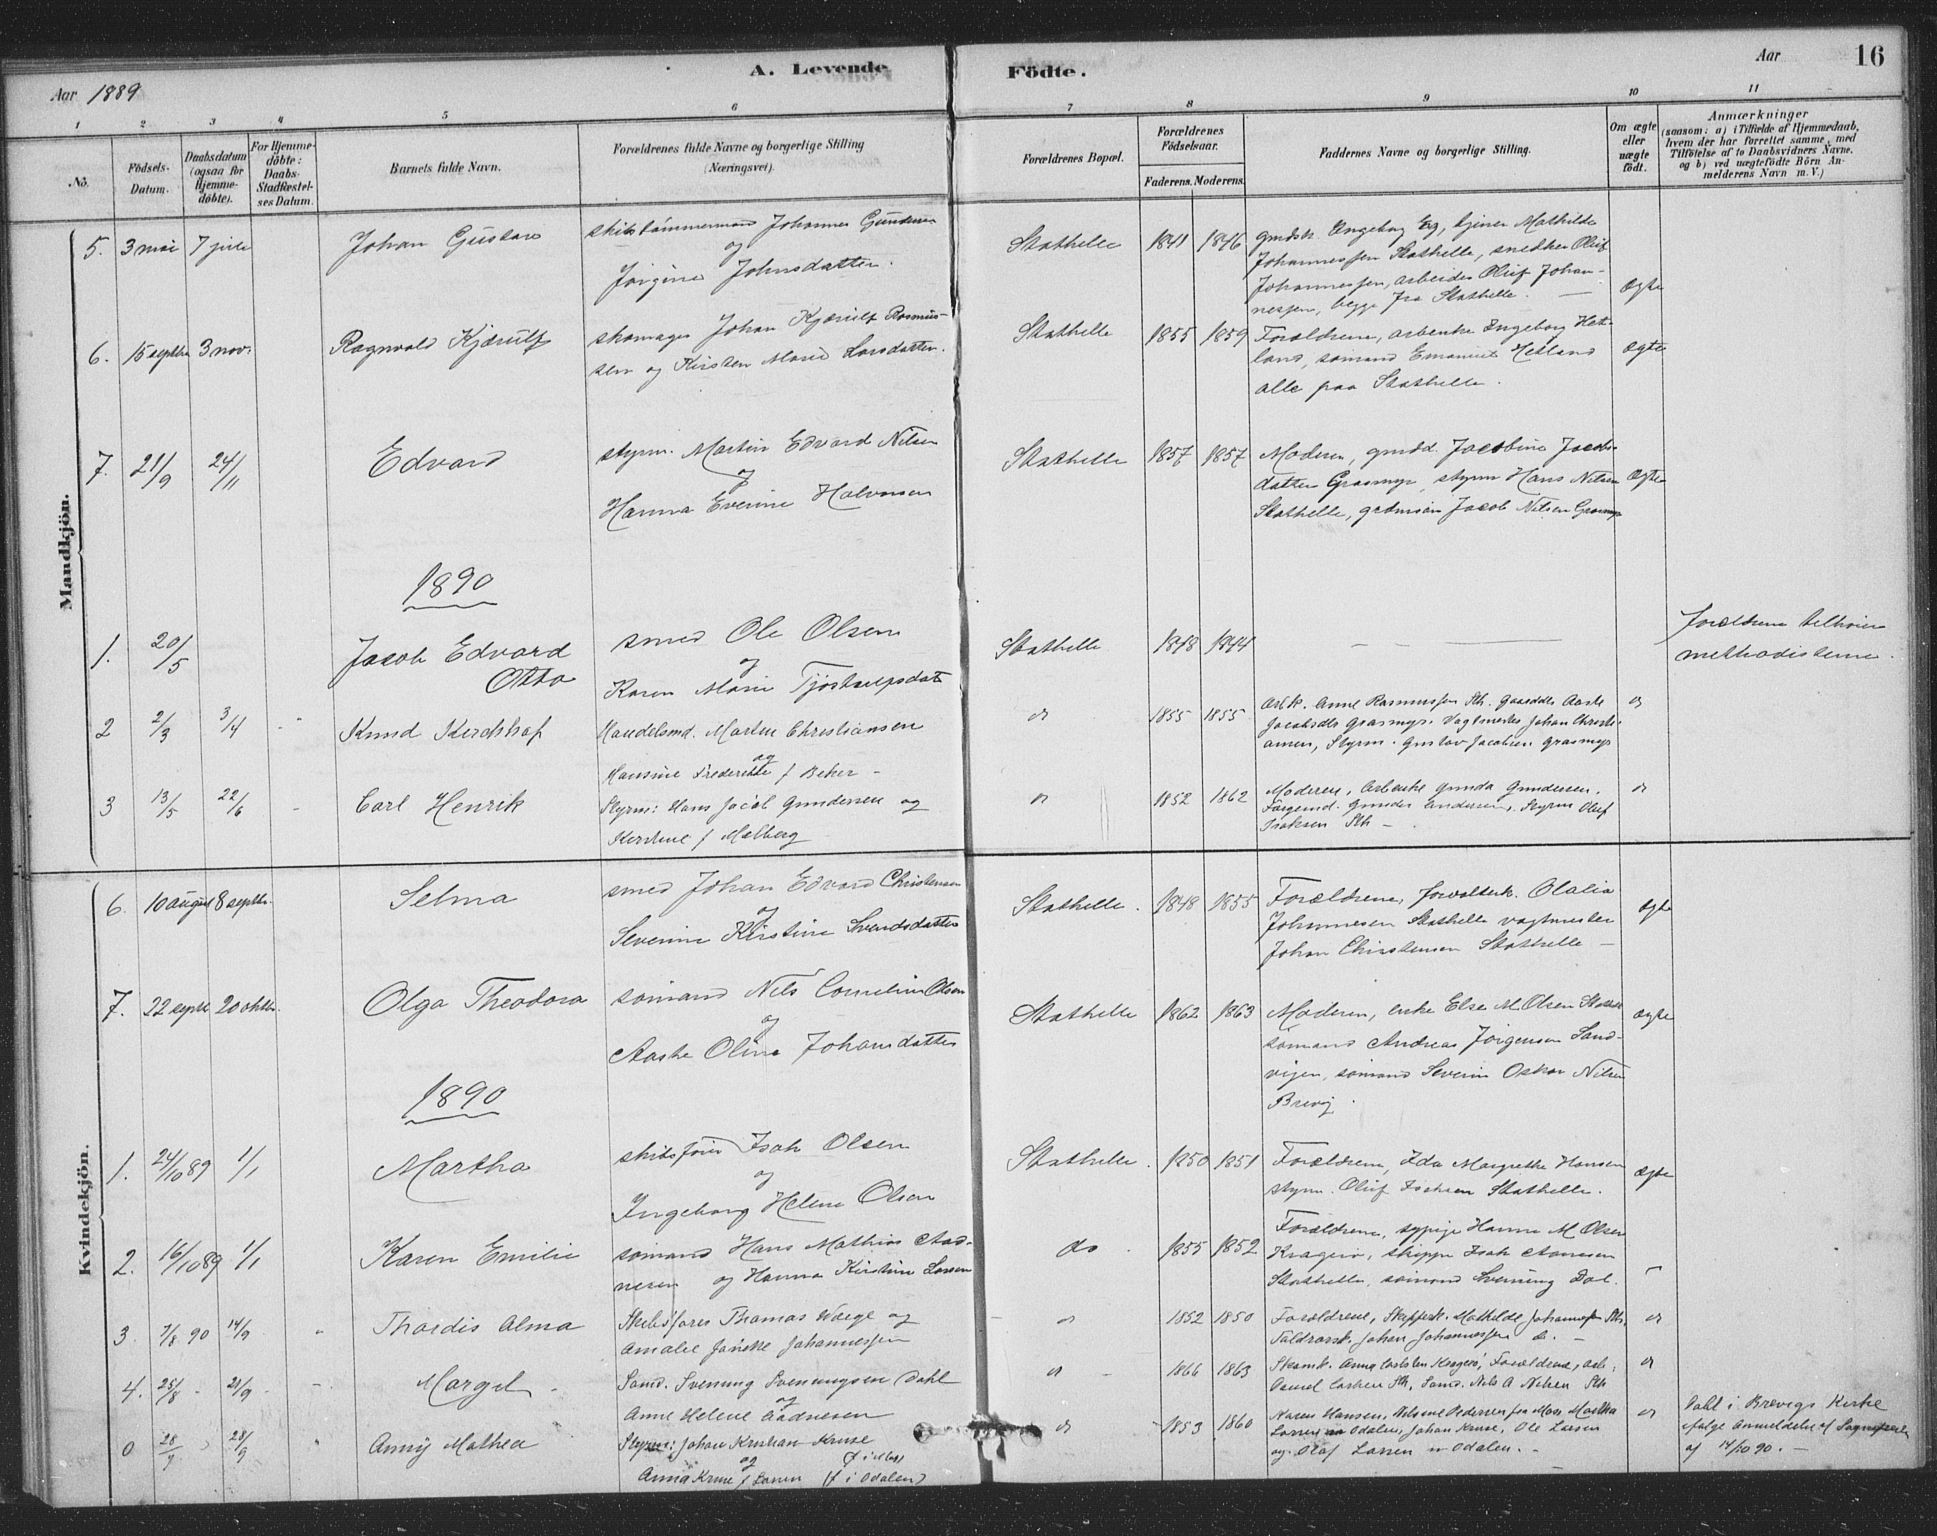 Aar 1889
A. Levende
Födte.
Aar
16
1
2
3
4
5
6
7
8
9
10
11
No.
Födsels-
Datum.
Daabsdatum
(ogsaa for
Hjemme-
döbte).
For Hjemme-
döbte:
Daabs-
Stadfæstel-
ses Datum.
Barnets fulde Navn.
Forældrenes fulde Navne og borgerlige Stilling
(Næringsvei).
Forældrenes Bopæl.
Forældrenes
Födselsaar.
Faderens. Moderens.
Faddernes Navne og borgerlige Stilling.
Om ægte
eller
uægte
født.
Anmærkninger
(saasom: a) i Tilfælde af Hjemmedaab,
hvem der har forrettet samme, med
Tilföielse af to Daabsvidners Navne,
og b) ved uægtefödte Börn An-
melderens Navn m. V.)
Mandkjön.
5. 3 mai 7 juli
Johan Gustav
skibstømmermand Johannes Gundersen
og
Jørgine Johnsdatter.
Stathelle 1841 1846
Ingeborg Eg, tjener Mathilde
Johannessen Stathelle, snedker Oluf
Johannessen, arbeider Oluf Johan-
nessen, begge fra Stathelle.
Ægte
6. 15 septbr 3 nov.
Ragnvald Kjærulf
skomager Johan Kjærulf Rasmus-
sen og Kirsten Marie Larsdatter.
Stathelle 1855 1859
Forældrene, arbenke Ingeborg Het-
land, sømand Emanuel Hetland
alle paa Stathelle.
Ægte
7. 21/9 24/11
Edvard
styrm. Martin Edvard Nilsen
og
Hanna Evenine Halvorsen
Stathelle 1857 1857
Moderen, gmdd. Jacobine Jacobs-
datter Grasmyr, styrm Hans Nilsen
Stathelle, Jacob Nilsen Grasmyr
Ægte
1890
1. 20/5
Jacob Edvard
Otto
smed Ole Olsen
og
Karen Marie Tjøstulfsdat
Stathelle 1848 1844
Forældrene tilhører
methodisterne.
2 2/3 3/4
Knud Kerdshaf
Handelsmd. Martin Christiansen
og
Hansine Frederikke f Beker
do 1855 1855
Arbk. Anne Rasmussen Sth. Gaasdds Aaste
Jacobsdtr Grasmyr. Vagtmester Johan Christi-
ansen, Styrm. Gustav Jacobsen Grasmyr
do
3 13/5 22/6
Carl Henrik
Styrm: Hans Jacob Gundersen og
Kirstine f Malberg
do 1852 1862
Moderen, Arbenke Gunda Gundersen.
Gunder Andersen, Styrm Oluf
Isaksen Sth
do
Kvindekjön.
6. 10 august 8 septbr.
Selma
smed Johan Edvard Christensen
og
Severine Kirstine Svendsdatter
Stathelle. 1848 1855
Forældrene, forvalterk. Olalia
Johannesen Stathelle vagtmester
Johan Christensen Stathelle
Ægte
7. 22 septbr 20 oktbr.
Olga Theodora
sømand Nils Cornelius Olsen
og
Aaste Oline Johansdatter
Stathelle 1862 1863
Moderen, enke Else M. Olsen Stathelle
sømand Andreas Jørgensen Sand-
vigen, sømand Severin Oskar Nilsen
Brevig.
ægte
1890
1. 24/10 89 1/1
Martha
skibsfører Isak Olsen
og
Ingeborg Helene Olsen
Stathelle. 1850 1851
Forældrene, Ida Margrethe Hansen
styrm. Oluf Isaksen Stathelle.
Ægte
2. 16/10 89 1/1
Karen Emilie
sømand Hans Mathias Aad-
nesen og Hanna Kirstine Larsen
do 1855 1852
Forældrene, sypige Hanne M Olsen
Kragerø, skipper Isak Aanesen
Stathelle, sømand Svenning Dal.
3 7/8 90 14/9
Thordis Alma
Skibsfører Thomas Wæge og
Amalie Janicke Johannessen
do 1852 1850
Forældrene, Skipperk. Mathilde Johannessen Sth.
Johan Johannessen do.
do
4. 25/8 21/9
Margit
Sømd. Svenning Svenningsen Dahl
og
Anne Helene Aadnesen
do 1866 1863
Anna Carlsen Kragerø, Forældrene, arb:
Sth, Sømd. Nils A Nilsen Sth
do
0 28/7 28/9
Anny Mathea
Styrm: Johan Kristian Kruse
(f i Moss)
og
Anna Kruse f Larsen (f i Odalen)
do 1853 1860
Karen Hansen, Nilsine Pedersen fra Moss, Martha
Larsen Odalen, Johan Kruse, Ole Larsen
og Olaf Larsen Odalen.
do
Døbt i Brevigs Kirke
ifølge Anmeldelse af Sognepræsten
af 14/10 90.